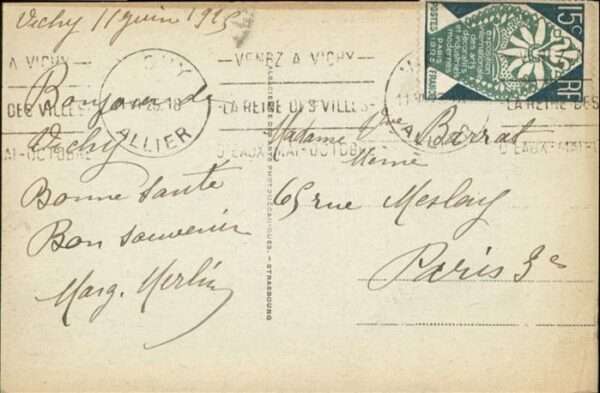 Vichy 11 juin 1925
Bonjour de
Vichy
Bonne Santé
Bon Souvenir
Marg. Merlin
Madame Vve Barrat
65 rue Meslay
Paris 3e
VENEZ A VICHY
LA REINE DES VILLES
D'EAUX MAI-OCTOBRE
A VICHY
DES VILLES
MAI-OCTOBRE
ALLIER
LA REINE DES
D'EAUX MAI-
15c
RF
POSTES
FRANCE
exposition
internationale
des arts
décoratifs
et industriels
modernes
PARIS
1925
STRASBOURG